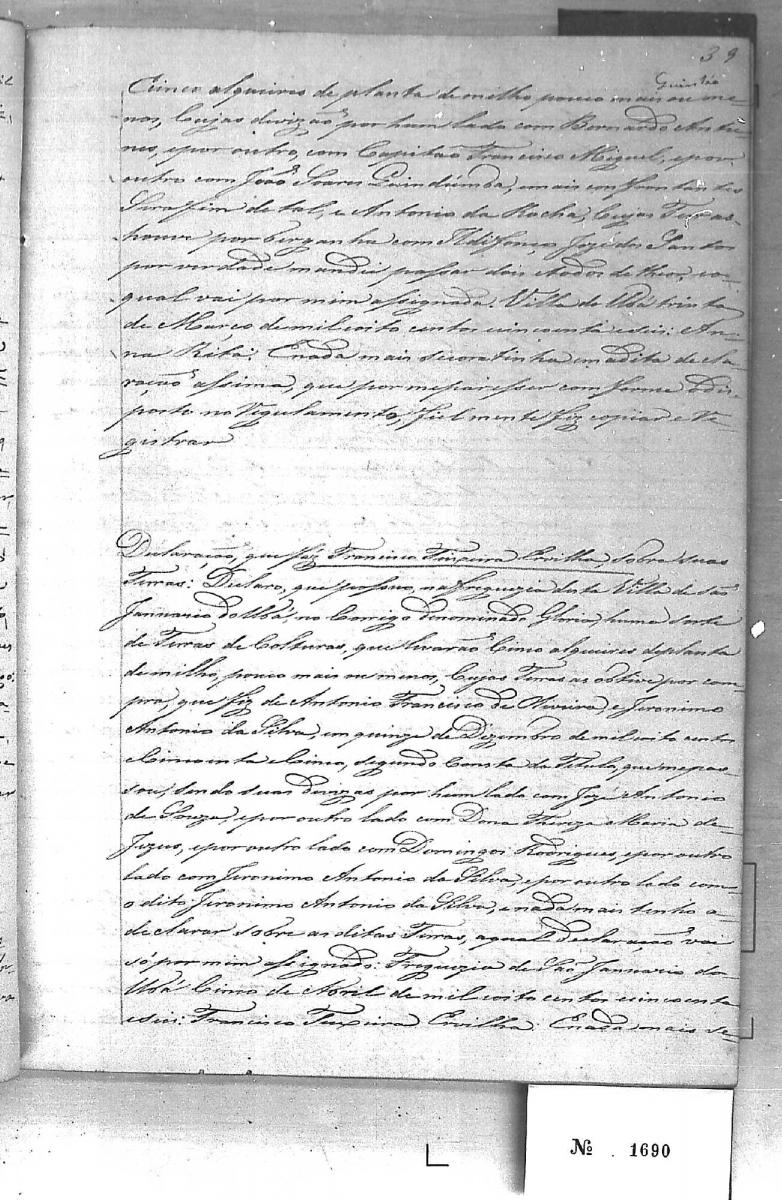 39
Cinco alqueires de planta de milho pouco mais ou me-
nos, Cujas divizaõ por hum lado com Bernardo Antu-
nes, epor outro, com Capitaõ Francisco Miguel, epor
outro com Joaõ Soares, emais confrontantes
Serafim de tal, e Antonio da Rocha, Cujas Terras
houve por berganha com Ildifonço Jozé dos Santos
por verdade mandei passar dois de theor, o
qual vai por mim assignada. Villa do Ubá trinta
de Março de mil oito centos cincoenta eseis: An-
na Rita: Enada mais secontinha em adita decla-
raçaõ assima, que por me pareser com forme odis-
posto no Regulamento, fielmente fiz copiar e Re-
gistrar
Declaraçaõ, que faz Francisco Teixeira Ervilha, sobre suas
Terras: Declaro, que possuo, na freguezia desta Villa de São
Jannuario do Ubá, no Corrigo denominado Gloria, huma sorte
de Terras de Colturas, que levaraõ Cinco alqueires de planta
de milho, pouco mais ou menos, Cujas Terras as obtive por com-
pra, que fiz de Antonio Francisco de Oliveira, e Jeronimo
Antonio da Silva, em quinze de Dezembro de mil oito centos
eCincoenta eCinco, segundo Consta do Titulo, que me pas-
sou, sendo suas divizas por hum lado com Jozé Antonio
de Souza, epor outro lado com Dona Thereza Maria de
Jezus, epor outro lado com Domingos Rodrigues, epor outro
lado com Jeronimo Antonio da Silva, epor outro lado com
o dito Jeronimo Antonio da Silva, enada mais tenho a-
declarar sobre as ditas Terras, aqual declaraçaõ vai
só por mim assignado: Freguezia de São Jannuario do
Ubá Cinco de Abril de mil oito centos cincoenta
eseis: Francisco Teixeira Ervilha: Enada mais se-
Nº 1690